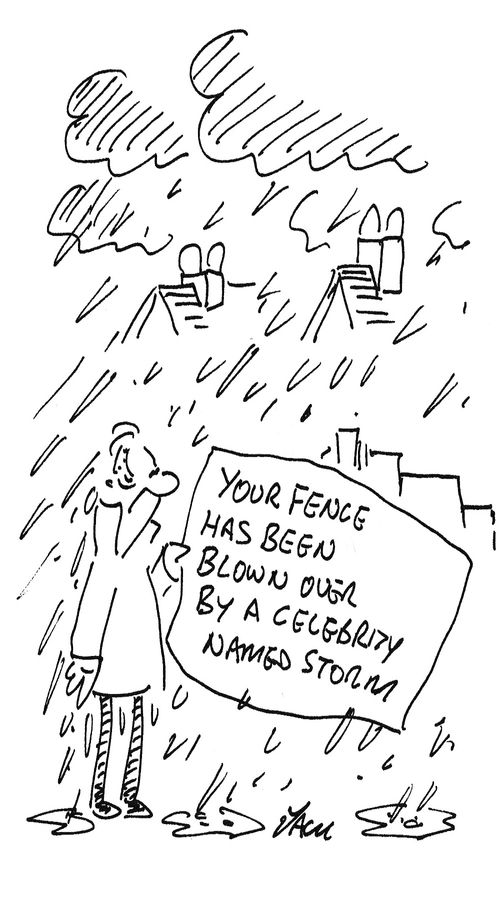 YOUR FENCE
HAS BEEN
BLOWN OVER
BY A CELEBRITY
NAMED STORM